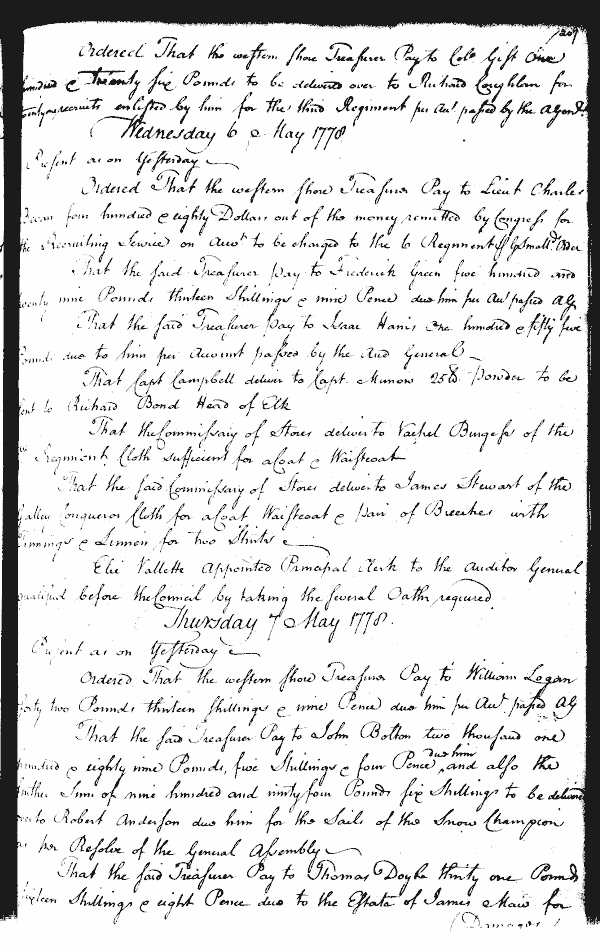 Ordered That the western shore Treasurer Pay to Colo. Gist One
hundred & twenty six Pounds to be delivered over to Richard Coughlan for
twenty one recruits enlisted by him for the third Regiment per Act. passed by the A Genl.
Wednesday 6 May 1778
Present as on Yesterday
Ordered That the western shore Treasurer Pay to Lieut Charles
Beaven four hundred & eighty Dollars out of the money remitted by Congress for
the Recruiting Service on Acct. to be charged to the 6 Regiment
That the said Treasurer pay to Frederick Green five hundred and
twenty nine Pounds thirteen Shillings & nine Pence due him per Act. passed A G
That the said Treasurer pay to Isaac Harris one hundred & fifty five
Pounds due to him per Account passed by the Aud General
That Capt Campbell deliver to Capt. Munow 25 lb. Powder to be
sent to Richard Bond Head of Elk
That the Commissary of Stores deliver to Vachel Burgess of the
Regiment Cloth sufficient for a Coat & Waistcoat
That the said Commissary of Stores deliver to James Stewart of the
Galley Conqueror Cloth for a Coat Waistcoat & pair of Breeches with
Trimmings & Linnen for two Shirts
Elie Vallette Appointed Principal Clerk to the Auditor General
qualified before the Council by taking the several Oaths required.
Thursday 7 May 1778.
Present as on Yesterday
Ordered That the western shore Treasurer Pay to William Logan
forty two Pounds thirteen shillings & nine Pence due him per Act. passed AG
That the said Treasurer Pay to John Bolton two thousand one
hundred & eighty nine Pounds, five Shillings & four Pence due him and also the
further Sum of nine hundred and ninty four Pounds six Shillings to be delivered
over to Robert Anderson due him for the Sails of the Snow Champion
as per Resolve of the General Assembly
That the said Treasurer Pay to Thomas Doyle thirty one Pounds
sixteen Shillings & eight Pence due to the Estate of James Maw for
(Damages